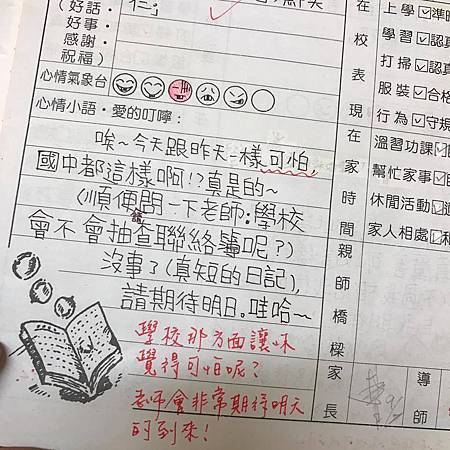 (好話・
好事・
感謝・
祝福)
仁」
心情氣象台
心情小語・愛的叮嚀:
唉~今天跟昨天一樣可怕,
國中都這樣啊!?真是的~
(順便問一下老師:學校
會不會抽查聯絡簿呢?)
沒事了(真短的日記),
請期待明日。哇哈~
學校那方面讓妳
覺得可怕呢?
老師會非常期待明天
的到來!
在校表現
上學 準時
學習 認真
打掃 認真
服裝 合格
行為 守規
在家時間
溫習功課
幫忙家事
休閒活動
家人相處
親師橋樑
家長
導師